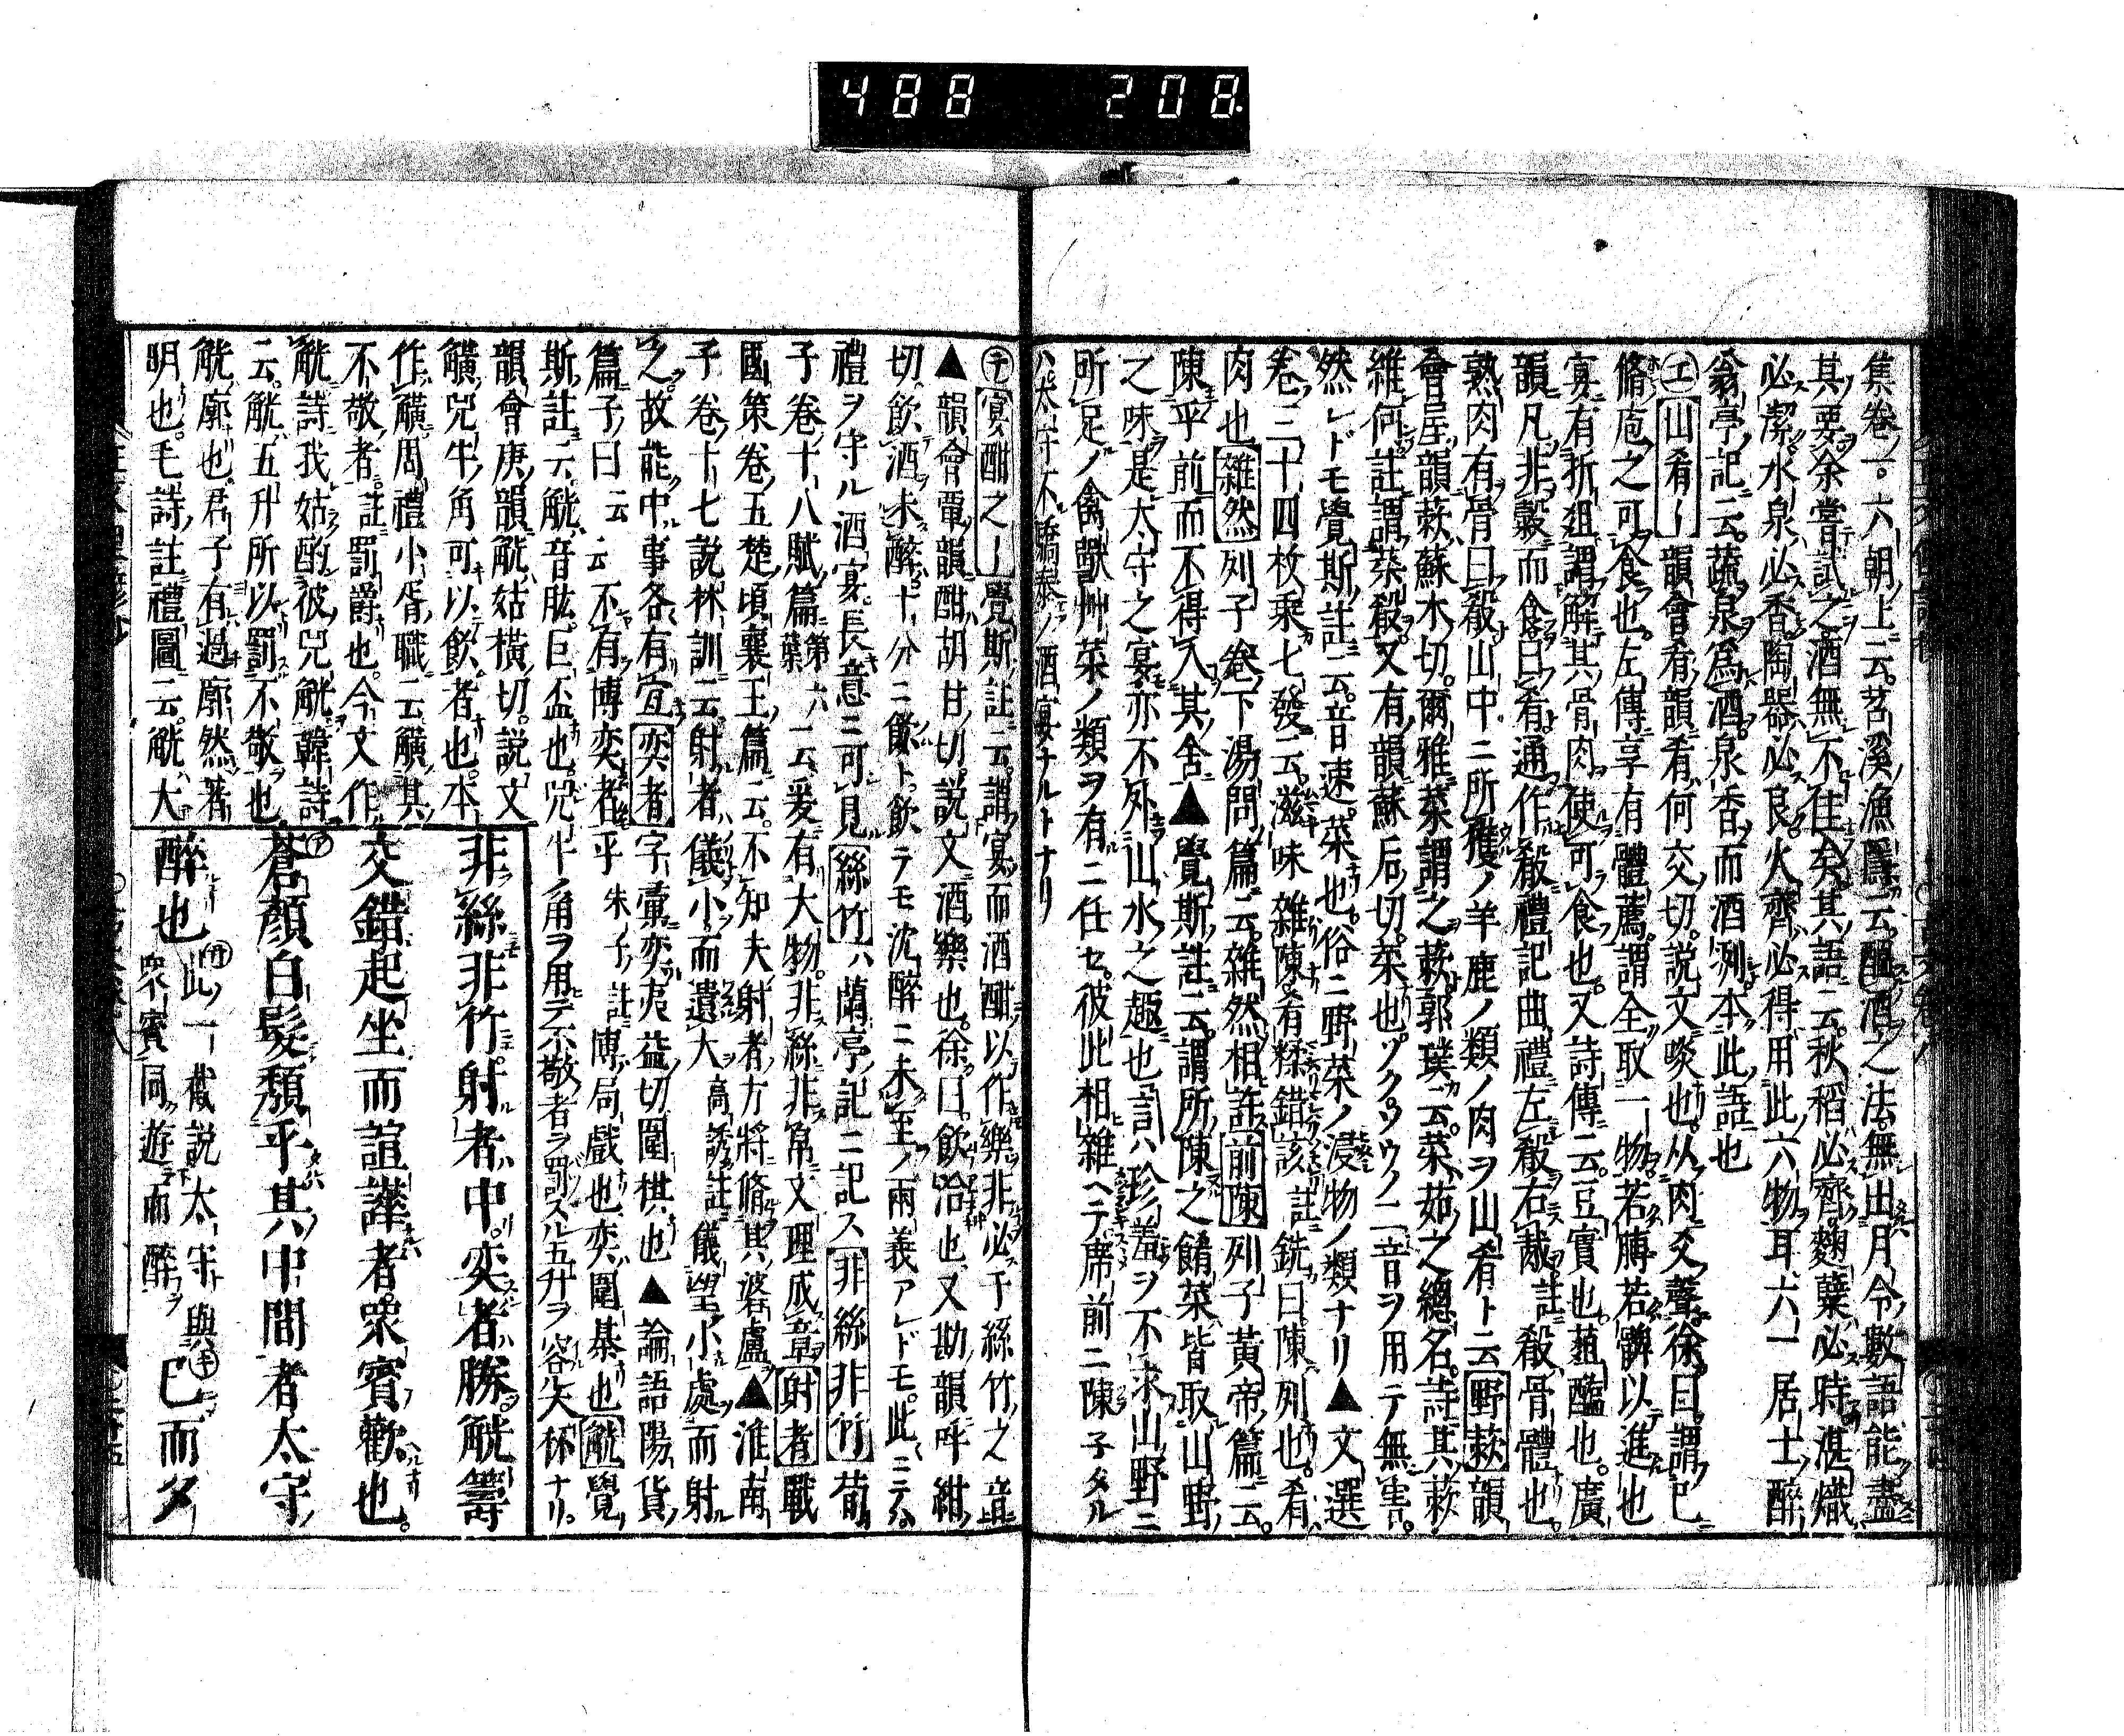 488 208
集卷一。六朝上云。苕溪漁隱云。醞酒之法。無出月令數語能盡
其要余嘗試之酒無不佳矣其語云秋稻必齊麴蘖必時湛熾
必潔水泉必香陶器必良火齊必得用此六物耳六一居士醉
翁亭記云。蔬泉爲酒。泉香而酒洌。本此語也
㋓山肴〡韻會肴韻肴何交切。説文啖也。从肉爻聲徐曰謂已
脩庖之可食也。左傳享有體薦。謂全取一物若膊若髀以進也
宴有折俎謂解其骨肉使可食也。又詩傳云。豆實也葅醢也。廣
韻凡非穀而食曰肴通作殽禮記曲禮左殽右胾註殽骨體也。
熟肉有骨曰殽山中ニ所獲ノ羊鹿ノ類ノ肉ヲ山肴ト云野蔌韻
會屋韻蔌蘇木切。爾雅菜謂之蔌郭璞云。菜茹之總名。詩其蔌
維何註謂菜殽又有韻蘇后切。菜也。ソクソウノ二音ヲ用テ無害。
然レドモ覺斯註云。音速。菜也俗ニ野菜ノ浸物ノ類ナリ▲文選
卷三十四枚乘七發云。滋味雜陳肴糅錯該註銑曰陳列也。肴
肉也雜然列子卷下湯問篇云。雜然相許前陳列子黃帝篇云。
陳乎前而不得入其舍▲覺斯註云。謂所陳之餚菜皆取山野
之味是太守之宴亦不外山水之趣也言ハ珍羞ヲ不求山野ニ
所足ノ禽獸艸菜ノ類ヲ有ニ任セ。彼此相雜ヘテ席前ニ陳子タル
ハ太守不驕泰ノ酒宴ナルトナリ
㋢宴酣之〡覺斯註云。謂宴而酒酣以作樂非必于絲竹之音
▲韻會覃韻酣胡甘切。説文酒樂也。徐曰飲洽也又勘韻呼紺
切。飲酒未醉十分ニ歡ト飲テモ沈醉ニ未至ノ兩義アレドモ。此ニテハ
禮ヲ守ル酒宴。長意ニ可見絲竹ハ蘭亭記ニ記ス非絲非竹荀
子卷十八賦篇第六葉云爰有大物。非絲非帛文理成章射者戰
國策卷五楚頃襄王篇云。不知夫射者方將脩其碆盧▲淮南
子卷十七説林訓云射者儀小而遺大高誘註儀望小處而射
之。故能中事各有宜奕者字彙奕夷益切圍棋也▲論語陽貨
篇子曰云云不有博奕者乎朱子註博局戲也奕圍棊也觥覺
斯註云觥音肱巨盃也。兕牛ノ角ヲ用テ不敬者ヲ罰スル五升ヲ容ル大杯ナリ。
韻會庚韻觥姑横切。説文
觵兕牛角可以飲者也。本
作觵周禮小胥職云觵其
不敬者註罰爵也。今文作
觥詩我姑酌彼兕觥韓詩
云。觥五升所以罰不敬也
觥廓也君子有過廓然著
明也。毛詩註禮圖云。觥大
非絲非竹射者中奕者勝觥籌
交錯起坐而諠譁者衆賓歡也。
蒼顔白髮頽乎其中間者太守
醉也此一截説太守與
衆賓同遊而醉已而夕